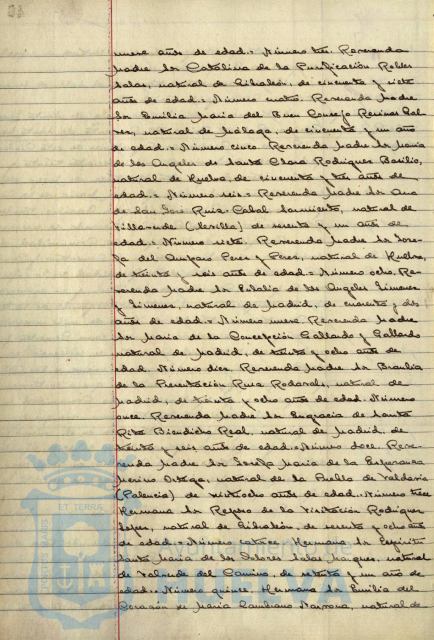 nueve años de edad.= Número tres. Reverenda
Madre Sor Catalina de la Purificación Robles
Salas, natural de Gibraleón, de cincuenta y siete
años de edad.= Número cuatro. Reverenda Madre
Sor Emilia Maria del Buen Consejo
natural de Málaga, de cincuenta y un año
de edad.= Número cinco. Reverenda Madre Sor Maria
de los Angeles de Santa Clara Rodriguez Basilio,
natural de Huelva, de cincuenta y tres años de
edad.= Número seis= Reverenda Madre Sor Ana
de San José Ruiz Cabal Sarmiento, natural de
Villaverde (Sevilla) de sesenta y un años de
edad.= Número siete. Reverenda Madre Sor Jose-
fa del Amparo Perez y Perez, natural de Huelva,
de treinta y seis años de edad.= Número ocho. Re-
verenda Madre Sor Eulalia de los Angeles Jimenez
y Jimenez, natural de Madrid, de cuarenta y dos
años de edad.= Número nueve. Reverenda Madre
Sor Maria de la Concepción Gallardo y Gallardo
natural de Madrid, de treinta y ocho años de
edad. Número diez. Reverenda Madre Sor Braulia
de la Presentación Ruiz natural de
Madrid, de treinta y ocho años de edad. Número
once. Reverenda Madre Sor Engracia de Santa
Rita Real, natural de Madrid, de
treinta y seis años de edad.= Número doce. Reve-
renda Madre Sor Josefa Maria de la Esperanza
Merino Ortega, natural de la Puebla de Valdavia
(Palencia) de veintiocho años de edad.= Número trece
Hermana Sor Regina de la Visitación Rodriguez
Lopez, natural de Gibraleón, de sesenta y ocho años
de edad.= Número catorce. Hermana Sor Espíritu
Santa Maria de los Dolores Salas Marquez, natural
de Valverde del Camino, de setenta y un año de
edad.= Número quince. Hermana Sor Emilia del
Corazón de Maria natural de
PORTUS MARIS ET TERRAE